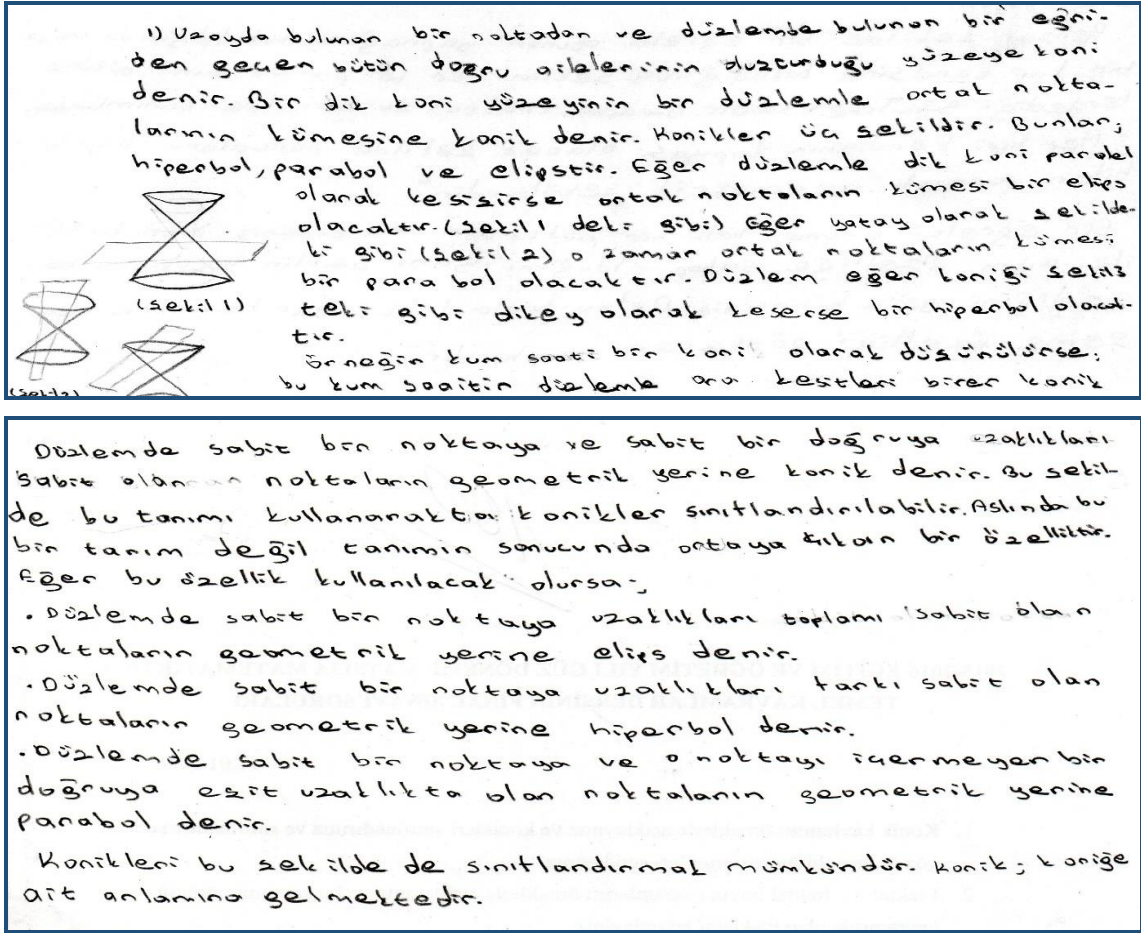 1) Uzayda bulunan bir noktadan ve düzlemde bulunan bir eğri-
den geçen bütün doğru ailelerinin oluşturduğu yüzeye koni
denir. Bir dik koni yüzeyinin bir düzlemle ortak nokta-
larının kümesine konik denir. Konikler üç şekildir. Bunlar;
hiperbol, parabol ve elipstir. Eğer düzlemle dik koni paralel
olarak kesişirse ortak noktaların kümesi bir elips
olacaktır (şekil 1 deki gibi) Eğer yatay olarak şekilde-
ki gibi (şekil 2) o zaman ortak noktaların kümesi
bir parabol olacaktır. Düzlem eğer koniği şekil 3
teki gibi dikey olarak keserse bir hiperbol olacak-
tır.
(şekil 1)
Örneğin kum saati bir konik olarak düşünülürse;
bu kum saatin düzlemle ara kesitleri birer konik
Düzlemde sabit bir noktaya ve sabit bir doğruya uzaklıkları
sabit olan noktaların geometrik yerine konik denir. Bu şekil-
de bu tanımı kullanarakta konikler sınıflandırılabilir. Aslında bu
bir tanım değil tanımın sonucunda ortaya çıkan bir özelliktir.
Eğer bu özellik kullanılacak olursa;
. Düzlemde sabit bir noktaya uzaklıkları toplamı sabit olan
noktaların geometrik yerine elips denir.
. Düzlemde sabit bir noktaya uzaklıkları farkı sabit olan
noktaların geometrik yerine hiperbol denir.
. Düzlemde sabit bir noktaya ve o noktayı içermeyen bir
doğruya eşit uzaklıkta olan noktaların geometrik yerine
parabol denir.
Konikleri bu şekilde de sınıflandırmak mümkündür. Konik; koniğe
ait anlamına gelmektedir.